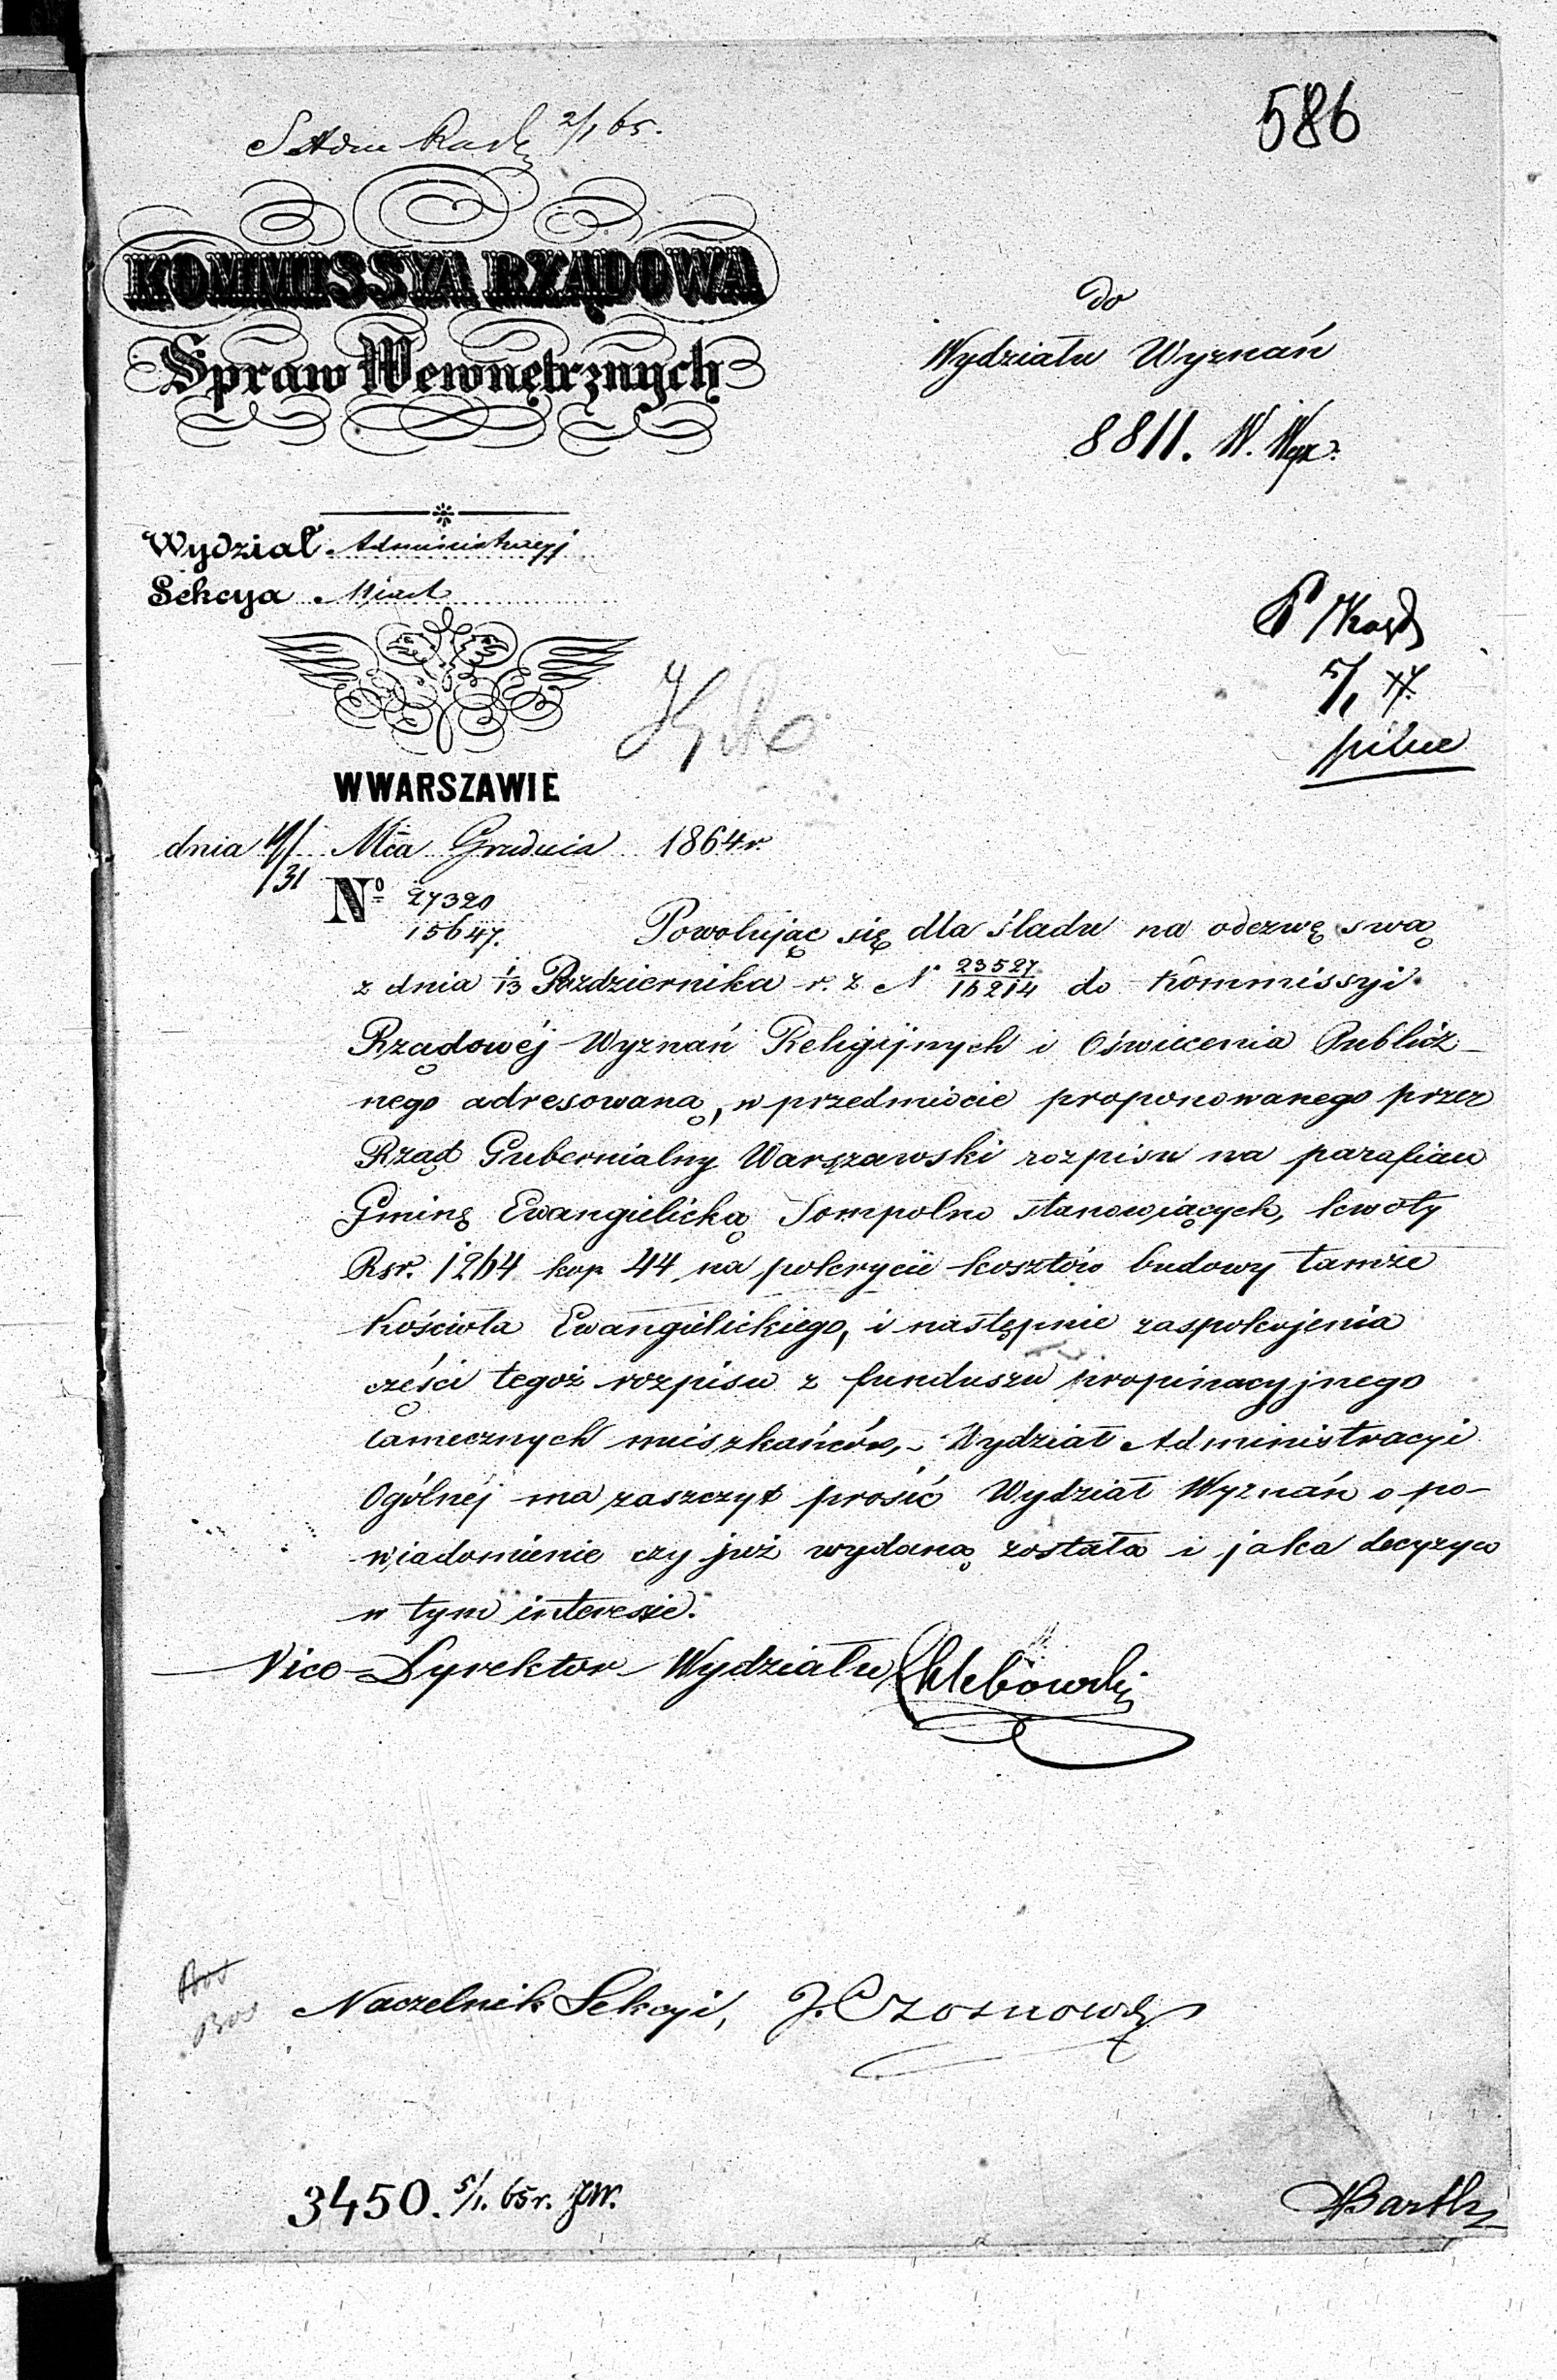 2/1 65.
586
KOMMISSYA RZĄDOWA
Spraw Wewnętrznych
do
Wydziału Wyznań
8811. W. Wyz.
Wydział Administracyj
Sekcya Miast
5/1
pilne
W WARSZAWIE
dnia 19/31 Mca Grudnia 1864 r.
Nº 27320
15647.
Powołując się dla śladu na odezwę swą
z dnia 1/13 Października r. z N 23527/16214 do Kommissyi
Rządowéj Wyznań Religijnych i Oświecenia Publicz-
nego adresowaną, w przedmiocie proponowanego przez
Rząd Gubernialny Warszawski rozpisu na parafian
Gminę Ewangielicką Sompolno stanowiących, kwoty
Rsr. 1264 kop 44 na pokrycie kosztów budowy tamże
Kościoła Ewangielickiego, i następnie zaspokojenia
części tegoż rozpisu z funduszu propinacyjnego
tamecznych mieszkańców, - Wydział Administracyi
Ogólnéj ma zaszczyt prosić Wydział Wyznań o po-
wiadomienie czy już wydaną została i jaka decyzya
w tym interesie.
Vice-Dyrektor Wydziału Chlebowski
Naczelnik Sekcyi, J. Czosnowski
3450. 5/1. 65 r. JW.